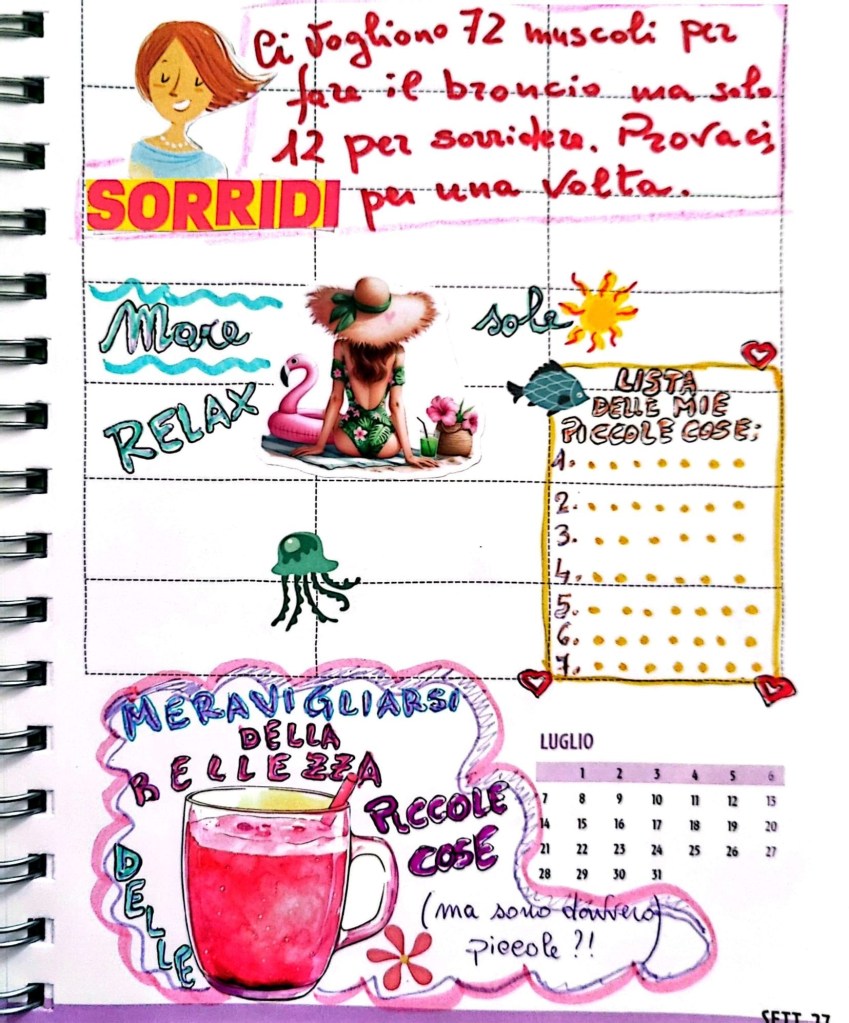 Ci vogliono 72 muscoli per
fare il broncio ma solo
12 per sorridere. Provaci,
SORRIDI per una volta.
Mare
sole
RELAX
LISTA
DELLE MIE
PICCOLE COSE:
1.
2.
3.
4.
5.
6.
7.
MERAVIGLIARSI
DELLA
BELLEZZA
DELLE
PICCOLE
COSE
(ma sono davvero)
piccole?!
LUGLIO
1 2 3 4 5 6
7 8 9 10 11 12 13
14 15 16 17 18 19 20
21 22 23 24 25 26 27
28 29 30 31
SETT. 27